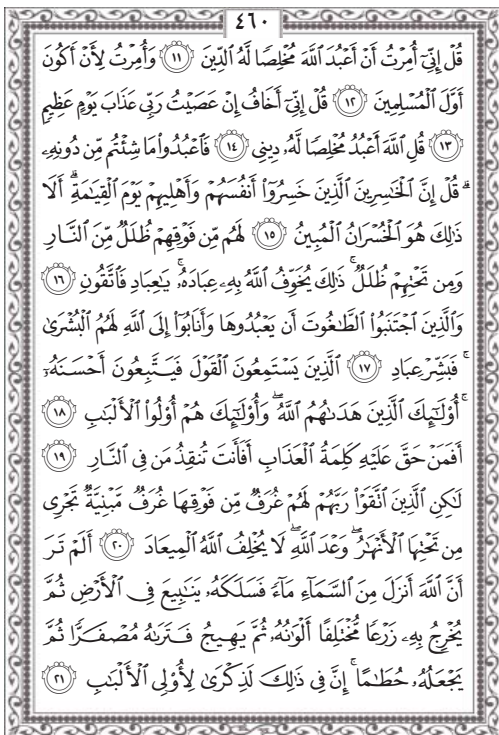 ٤٦٠
قُلْ إِنِّىٓ أُمِرْتُ أَنْ أَعْبُدَ ٱللَّهَ مُخْلِصًا لَّهُ ٱلدِّينَ ١١ وَأُمِرْتُ لِأَنْ أَكُونَ
أَوَّلَ ٱلْمُسْلِمِينَ ١٢ قُلْ إِنِّىٓ أَخَافُ إِنْ عَصَيْتُ رَبِّى عَذَابَ يَوْمٍ عَظِيمٍ
١٣ قُلِ ٱللَّهَ أَعْبُدُ مُخْلِصًا لَّهُۥ دِينِى ١٤ فَٱعْبُدُوا۟ مَا شِئْتُم مِّن دُونِهِۦ
ۗ قُلْ إِنَّ ٱلْخَٰسِرِينَ ٱلَّذِينَ خَسِرُوٓا۟ أَنفُسَهُمْ وَأَهْلِيهِمْ يَوْمَ ٱلْقِيَٰمَةِ ۗ أَلَا
ذَٰلِكَ هُوَ ٱلْخُسْرَانُ ٱلْمُبِينُ ١٥ لَهُم مِّن فَوْقِهِمْ ظُلَلٌ مِّنَ ٱلنَّارِ
وَمِن تَحْتِهِمْ ظُلَلٌ ۚ ذَٰلِكَ يُخَوِّفُ ٱللَّهُ بِهِۦ عِبَادَهُۥ ۚ يَٰعِبَادِ فَٱتَّقُونِ ١٦
وَٱلَّذِينَ ٱجْتَنَبُوا۟ ٱلطَّٰغُوتَ أَن يَعْبُدُوهَا وَأَنَابُوٓا۟ إِلَى ٱللَّهِ لَهُمُ ٱلْبُشْرَىٰ
ۚ فَبَشِّرْ عِبَادِ ١٧ ٱلَّذِينَ يَسْتَمِعُونَ ٱلْقَوْلَ فَيَتَّبِعُونَ أَحْسَنَهُۥٓ
ۚ أُو۟لَٰٓئِكَ ٱلَّذِينَ هَدَىٰهُمُ ٱللَّهُ ۖ وَأُو۟لَٰٓئِكَ هُمْ أُو۟لُوا۟ ٱلْأَلْبَٰبِ ١٨
أَفَمَنْ حَقَّ عَلَيْهِ كَلِمَةُ ٱلْعَذَابِ أَفَأَنتَ تُنقِذُ مَن فِى ٱلنَّارِ ١٩
لَٰكِنِ ٱلَّذِينَ ٱتَّقَوْا۟ رَبَّهُمْ لَهُمْ غُرَفٌ مِّن فَوْقِهَا غُرَفٌ مَّبْنِيَّةٌ تَجْرِى
مِن تَحْتِهَا ٱلْأَنْهَٰرُ ۖ وَعْدَ ٱللَّهِ ۖ لَا يُخْلِفُ ٱللَّهُ ٱلْمِيعَادَ ٢٠ أَلَمْ تَرَ
أَنَّ ٱللَّهَ أَنزَلَ مِنَ ٱلسَّمَآءِ مَآءً فَسَلَكَهُۥ يَنَٰبِيعَ فِى ٱلْأَرْضِ ثُمَّ
يُخْرِجُ بِهِۦ زَرْعًا مُّخْتَلِفًا أَلْوَٰنُهُۥ ثُمَّ يَهِيجُ فَتَرَىٰهُ مُصْفَرًّا ثُمَّ
يَجْعَلُهُۥ حُطَٰمًا ۚ إِنَّ فِى ذَٰلِكَ لَذِكْرَىٰ لِأُو۟لِى ٱلْأَلْبَٰبِ ٢١